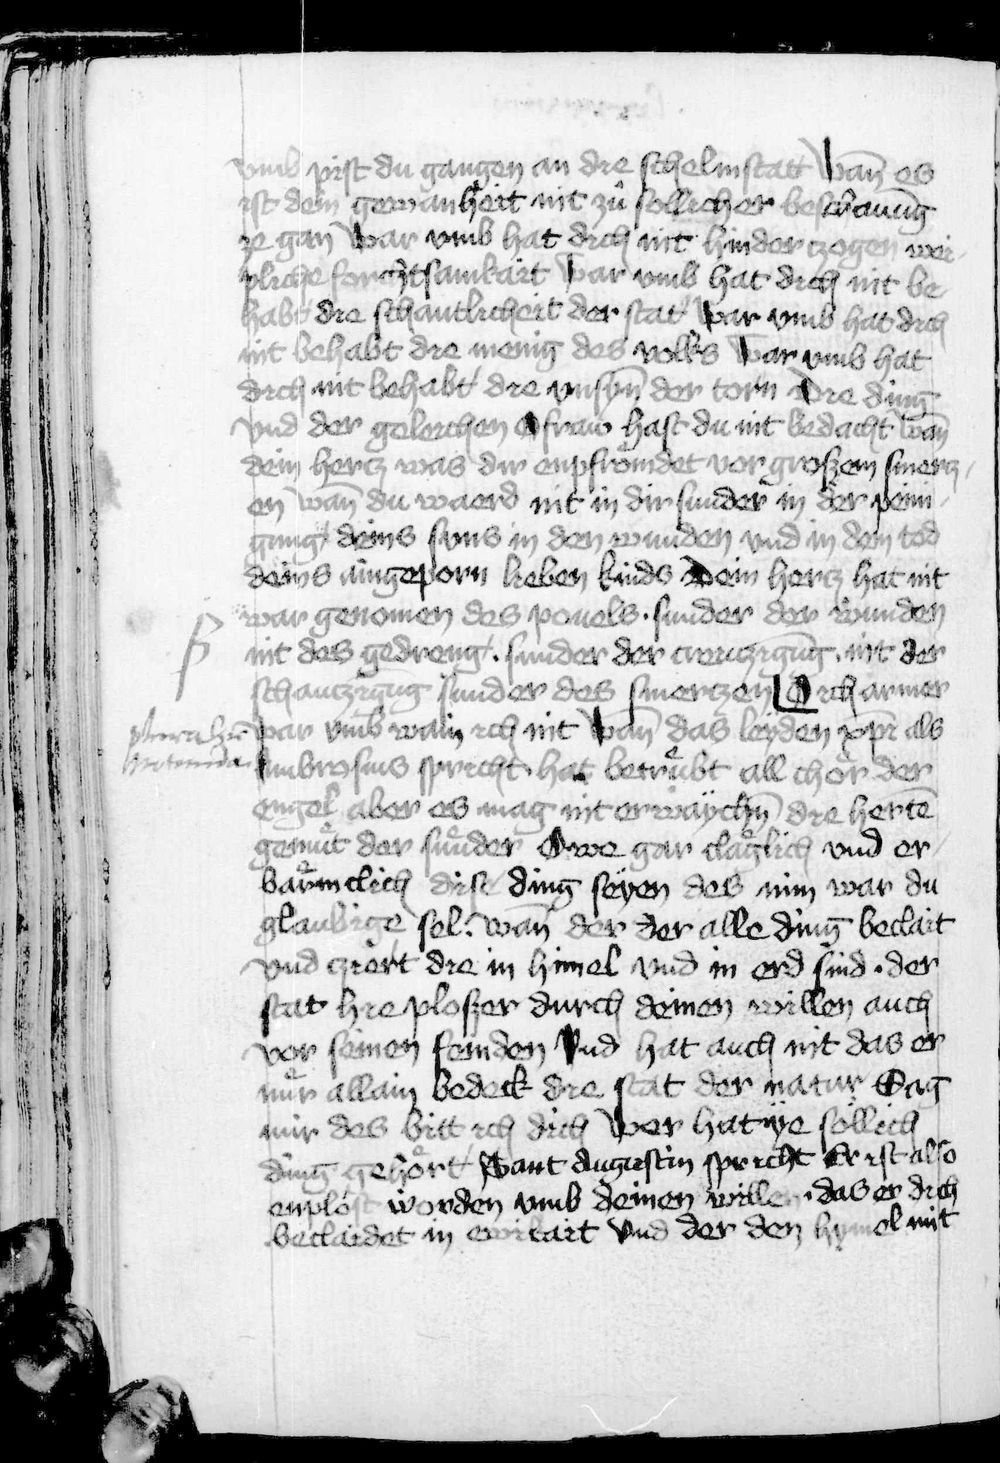 vmb pist du gangen an die schelmstatt Wan̄ es
ist dein gewanheit nit zů sollicher beschauūg
ze gan War vmb hat dich nit hinder czogen wei¬
pliche forchtsamkait War vmb hat dich nit be¬
habt die schantlicheit der stat War vmb hat dich
nit behabt die menig des volks War vmb hat
dich nit behabt die vnsyn̄ der torn Die ding
vnd der geleichen O fraw hast du nit bedacht wan̄
dein hertz was dir enpfrömdet vor groszem smertz¬
en wan̄ du waerd nit in dir sunder in der peini¬
gung deins suns in den wunden vnd in dem tod
deins aingeporn lieben kinds Dein hertz hat nit
war genomen des pouels · sunder der wunden
nit des gedreng · sunder der creuczigūg · nit der
schauczigūg sunder des smertzen O ich armer
war vmb wain ich nit Wan̄ das leyden xp̄i als
Ambrosius spricht · hat betrůbt all chör der
engel aber es mag nit erwaychn̄ die hertē
gemüt der sünder Owe gar cläglich vnd er¬
bärmclich dise ding seyen des nim war du
glaubige sel · wan̄ der der alle ding beclait
vnd cziert die in himel vnd in erd sind · der
stat hie ploszer durch deinen willen auch
vor seinen feinden Vnd hat auch nit das er
nůr allain bedeck die stat der natur Sag
mir des bitt ich dich Wer hat ye söllich
ding gehört Sant Augustin spricht Er ist also
enplöst worden vmb deinen willen · das er dich
beclaidet in ewikait Vnd der den hymel mit